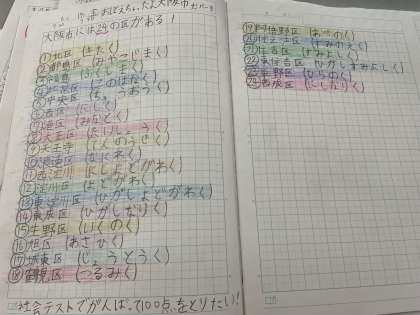 大阪市には24の区がある！
①北区（きたく）
②都島区（みやこじまく）
③福島区（ふくしまく）
④此花区（このはなく）
⑤中央区（ちゅうおうく）
⑥西区（にしく）
⑦港区（みなとく）
⑧大正区（たいしょうく）
⑨天王寺（てんのうじく）
⑩浪速区（なにわく）
⑪西淀川（にしよどがわく）
⑫淀川区（よどがわく）
⑬東淀川区（ひがしよどがわく）
⑭東成区（ひがしなりく）
⑮生野区（いくのく）
⑯旭区（あさひく）
⑰城東区（じょうとうく）
⑱鶴見区（つるみく）
社会テストでがんばって100点をとりたい！
⑲阿倍野区（あべのく）
⑳住之江区（すみのえく）
㉑住吉区（すみよしく）
㉒東住吉区（ひがしすみよしく）
㉓平野区（ひらのく）
㉔西成区（にしなりく）